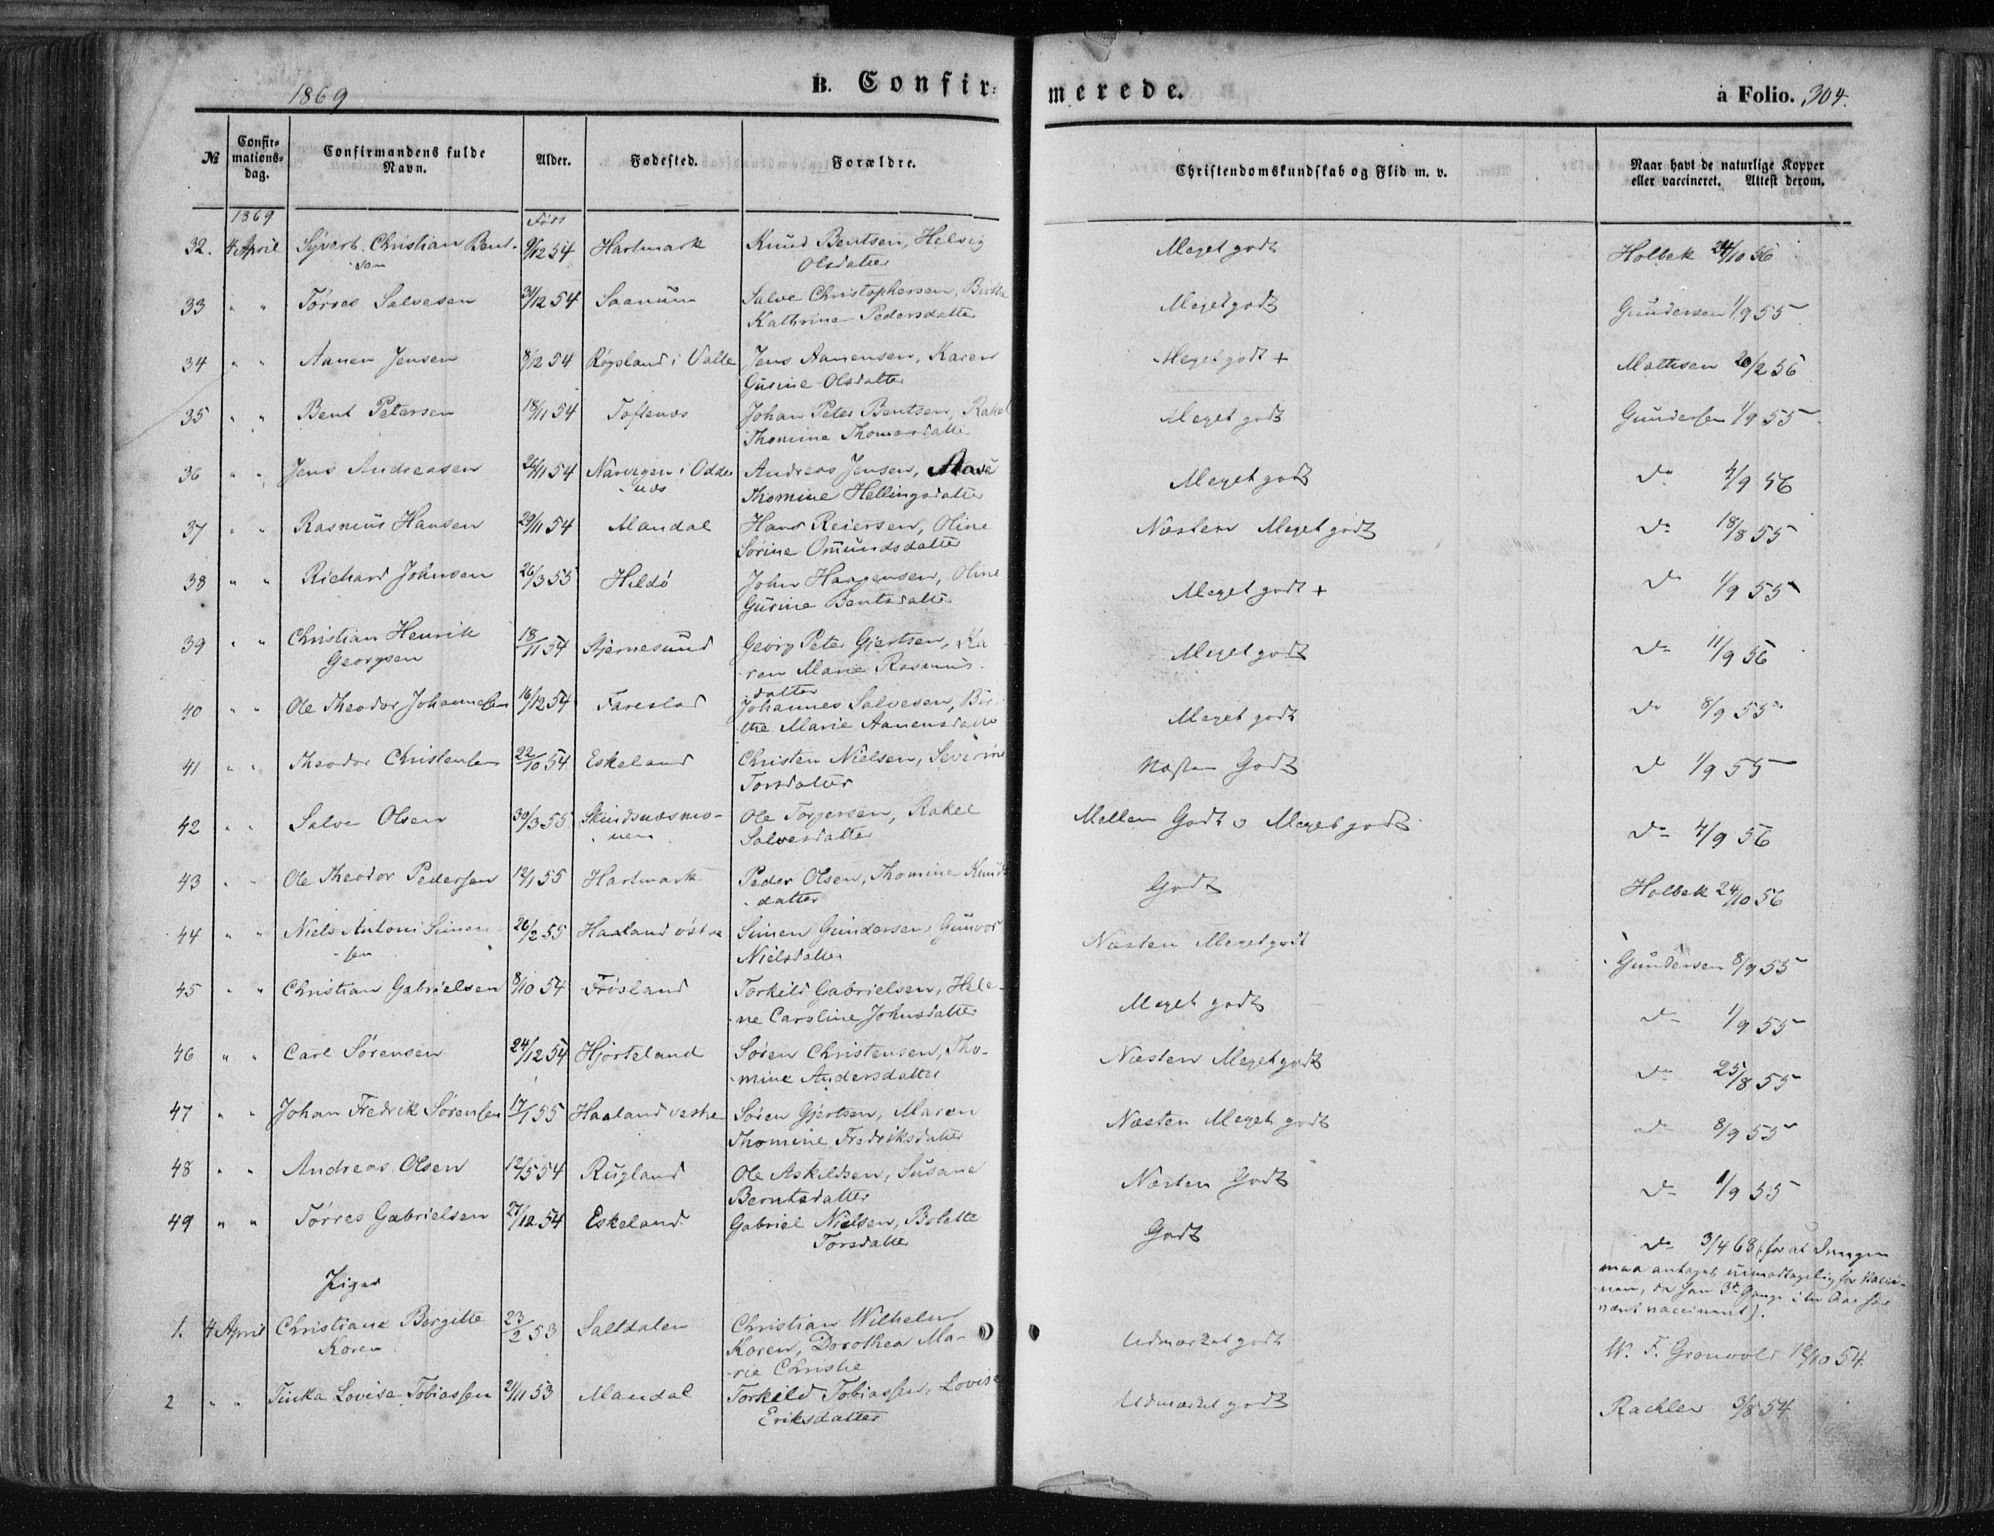 1869
B. Confir=
merede.
à Folio. 304.
№
Confir=
mations=
dag.
Confirmandens fulde
Navn.
Alder.
Fødested.
Forældre.
Christendomskundskab og Flid m. v.
Naar havt de naturlige Kopper
eller vaccineret. Attest derom.
1869
Født
32. 4 April Syvert Christian Bent- 9/12 54 Hartmark Knud Bentsen, Helvig Meget godt Holbek 24/10 56
sen Olsdatter
33 " " Tørres Salvesen 31/12 54 Saanum Salve Christophersen, Berthe Meget godt Gundersen 1/9 55
Kathrine Pedersdatter
34 " " Aanen Jensen 8/12 54 Røgsland i Valle Jens Aanensen, Karen Meget godt + Mathisen 20/2 56
Gurine Olsdatter
35 " " Bent Petersen 18/11 54 Toftenæs Johan Peter Bentsen, Rakel Meget godt Gundersen 1/9 55
Thomine Thomasdatter
36 " " Jens Andreasen 26/11 54 i Odder Andreas Jensen, Meget godt Do 4/9 56
næs Thomine Hellingsdatter
37 " " Rasmus Hansen 29/11 54 Mandal Hans Reiersen, Oline Næsten Meget godt Do 18/8 55
Sørine Omundsdatter
38 " " Richard Johnsen 26/3 55 Hildø John Haagensen, Oline Meget godt + Do 1/9 55
Gurine Bentsdatter
39 " " Christian Henrik 18/11 54 Stjernesund Georg Peter Gjertsen, Ka- Meget godt Do 11/9 56
Georgsen ren Marie Rasmus-
datter
40 " " Ole Theodor Johannessen 16/12 54 Farestad Johannes Salvesen, Bir- Meget godt Do 8/9 55
the Marie Aanensdatter
41 " " Theodor Christensen 22/10 54 Eskeland Christen Nielsen, Severine Næsten Godt Do 1/9 55
Torsdatter
42 " " Salve Olsen 30/3 55 Skindsnæsmo- Ole Torgersen, Rakel Mellem Godt o Meget godt Do 4/9 56
nen Salvesdatter
43 " " Ole Theodor Pedersen 12/1 55 Hartmark Peder Olsen, Thomine Knuds Godt Holbek 24/10 56
datter
44 " " Niels Antoni Simon- 26/2 55 Haaland østre Simen Gundersen, Gunvor Næsten Meget godt Gundersen 8/9 55
sen Nielsdatter
45 " " Christian Gabrielsen 8/10 54 Frøsland Torkild Gabrielsen, Hele- Meget godt Do 1/9 55
ne Caroline Johnsdatter
46 " " Carl Sørensen 24/12 54 Hjorteland Søren Christensen, Tho- Næsten Meget godt Do 25/8 55
mine Andersdatter
47 " " Johan Fredrik Sørensen 17/1 55 Haaland vestre Søren Gjertsen, Maren Næsten Meget godt Do 8/9 55
Thomine Fredriksdatter
48 " " Andreas Olsen 12/5 54 Rugland Ole Askildsen, Susane Næsten Godt Do 1/9 55
Berntsdatter
49 " " Tørres Gabrielsen 27/12 54 Eskeland Gabriel Nielsen, Bolette Godt Do 3/4 68 (for at Drengen
Torsdatter maa antages uimodtagelig for Vacci-
nen, da han 3de Gange i
været vaccineret).
Piger
1. 4 April Christiane Birgitte 23/2 53 Saltdalen Christian Wilhelm Udmærket godt W. F. Grønvold 12/10 54
Koren Koren, Dorothea Ma-
rie Christie
2 " " Tinka Lovise Tobiassen 21/11 53 Mandal Torkild Tobiassen, Lovise Udmærket godt Rachlew 3/8 54
Eriksdatter